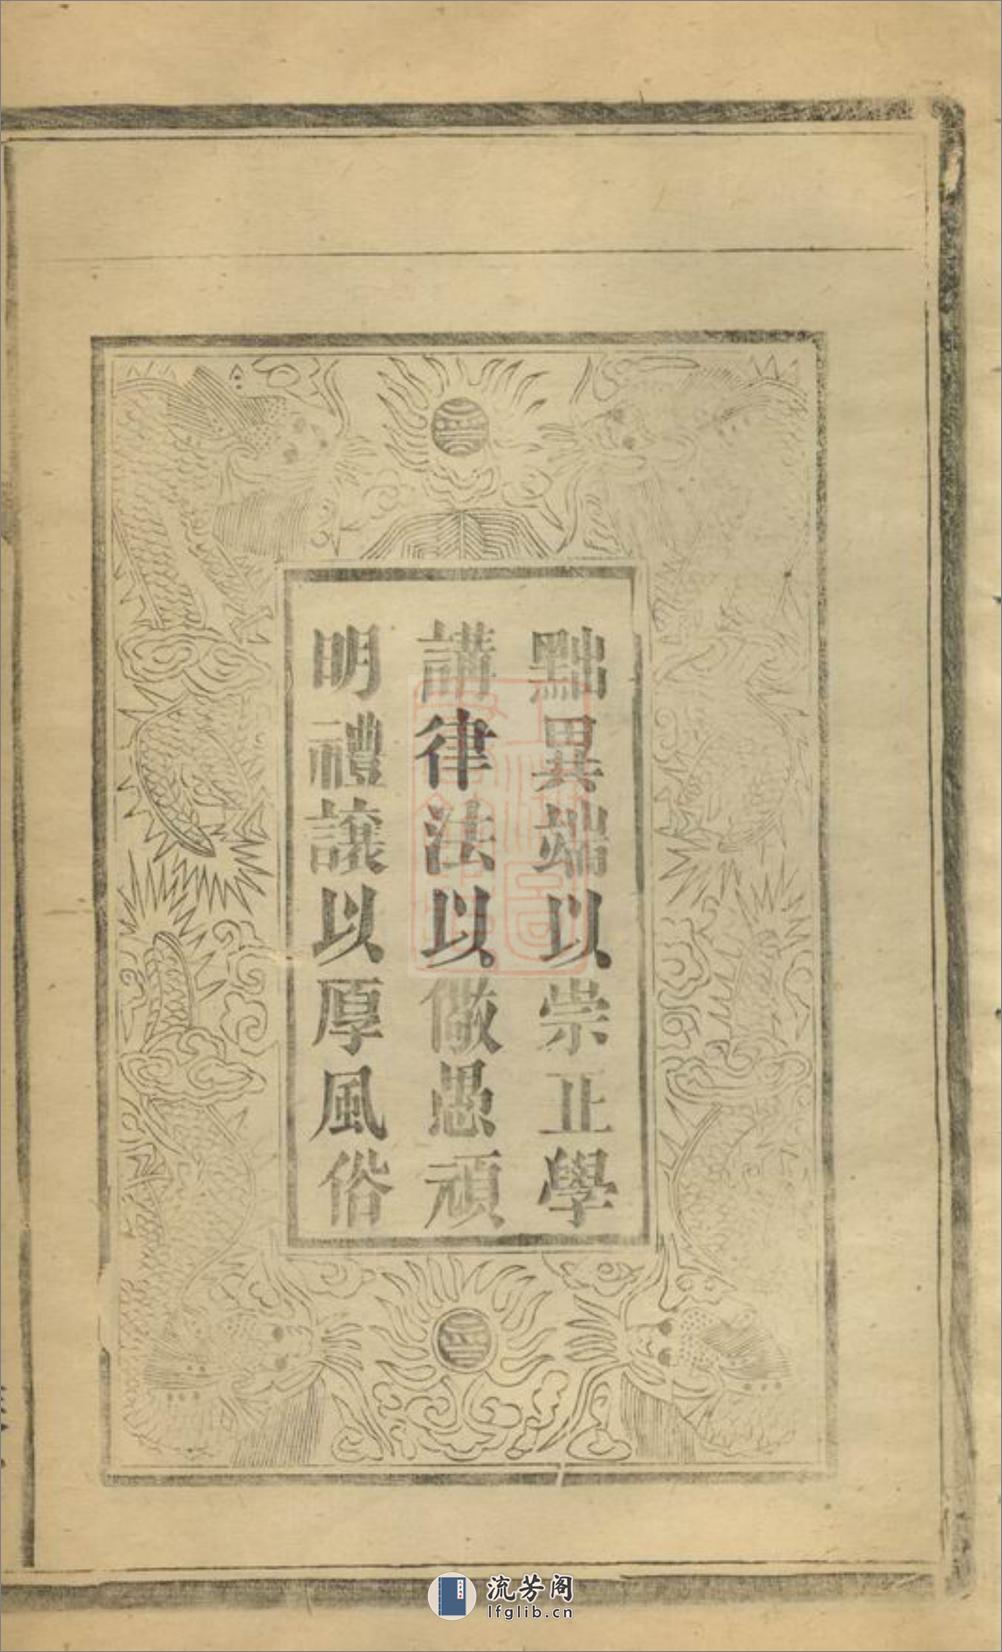 黜異端以崇正學
講律法以儆愚頑
明禮讓以厚風俗
流芳阁
lfglib.cn